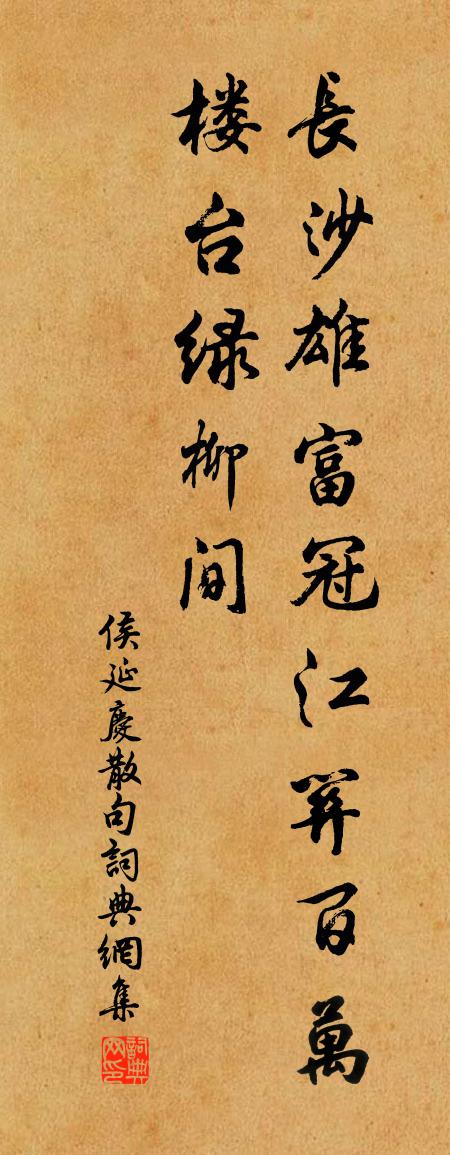 長沙雄富冠江關百萬
楼台绿柳间
侯延慶散句詞典網集
詞典网印